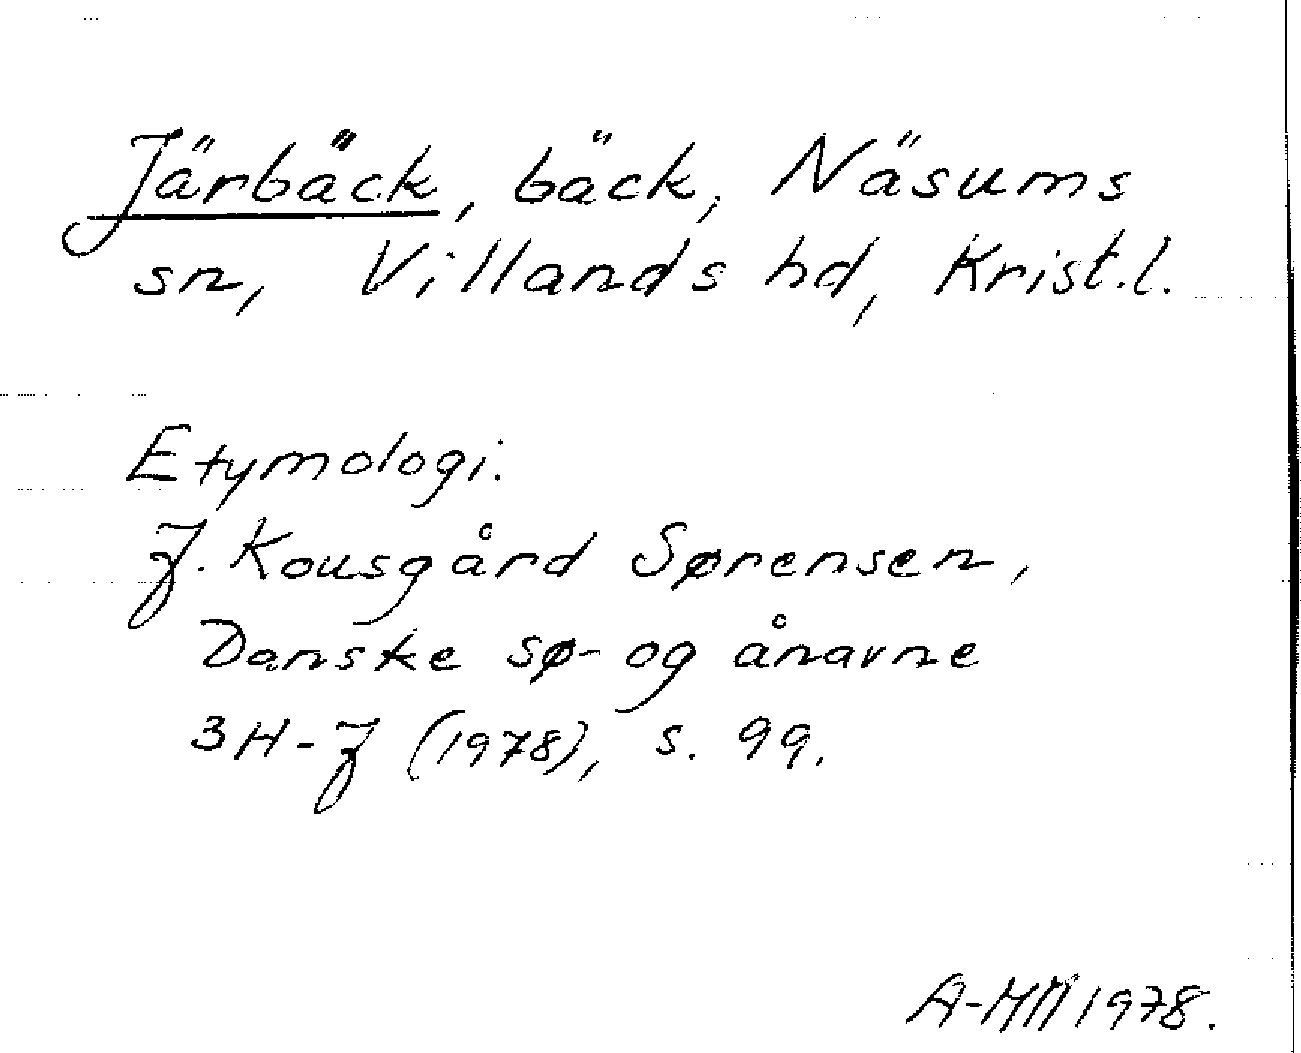 Järbäck, bäck, Näsums
sn, Villands hd, Krist.l.
Etymologi.
J. Kousgård Sørensen,
Danske sø- og ånavne
3H-J (1978), s. 99.
1978.